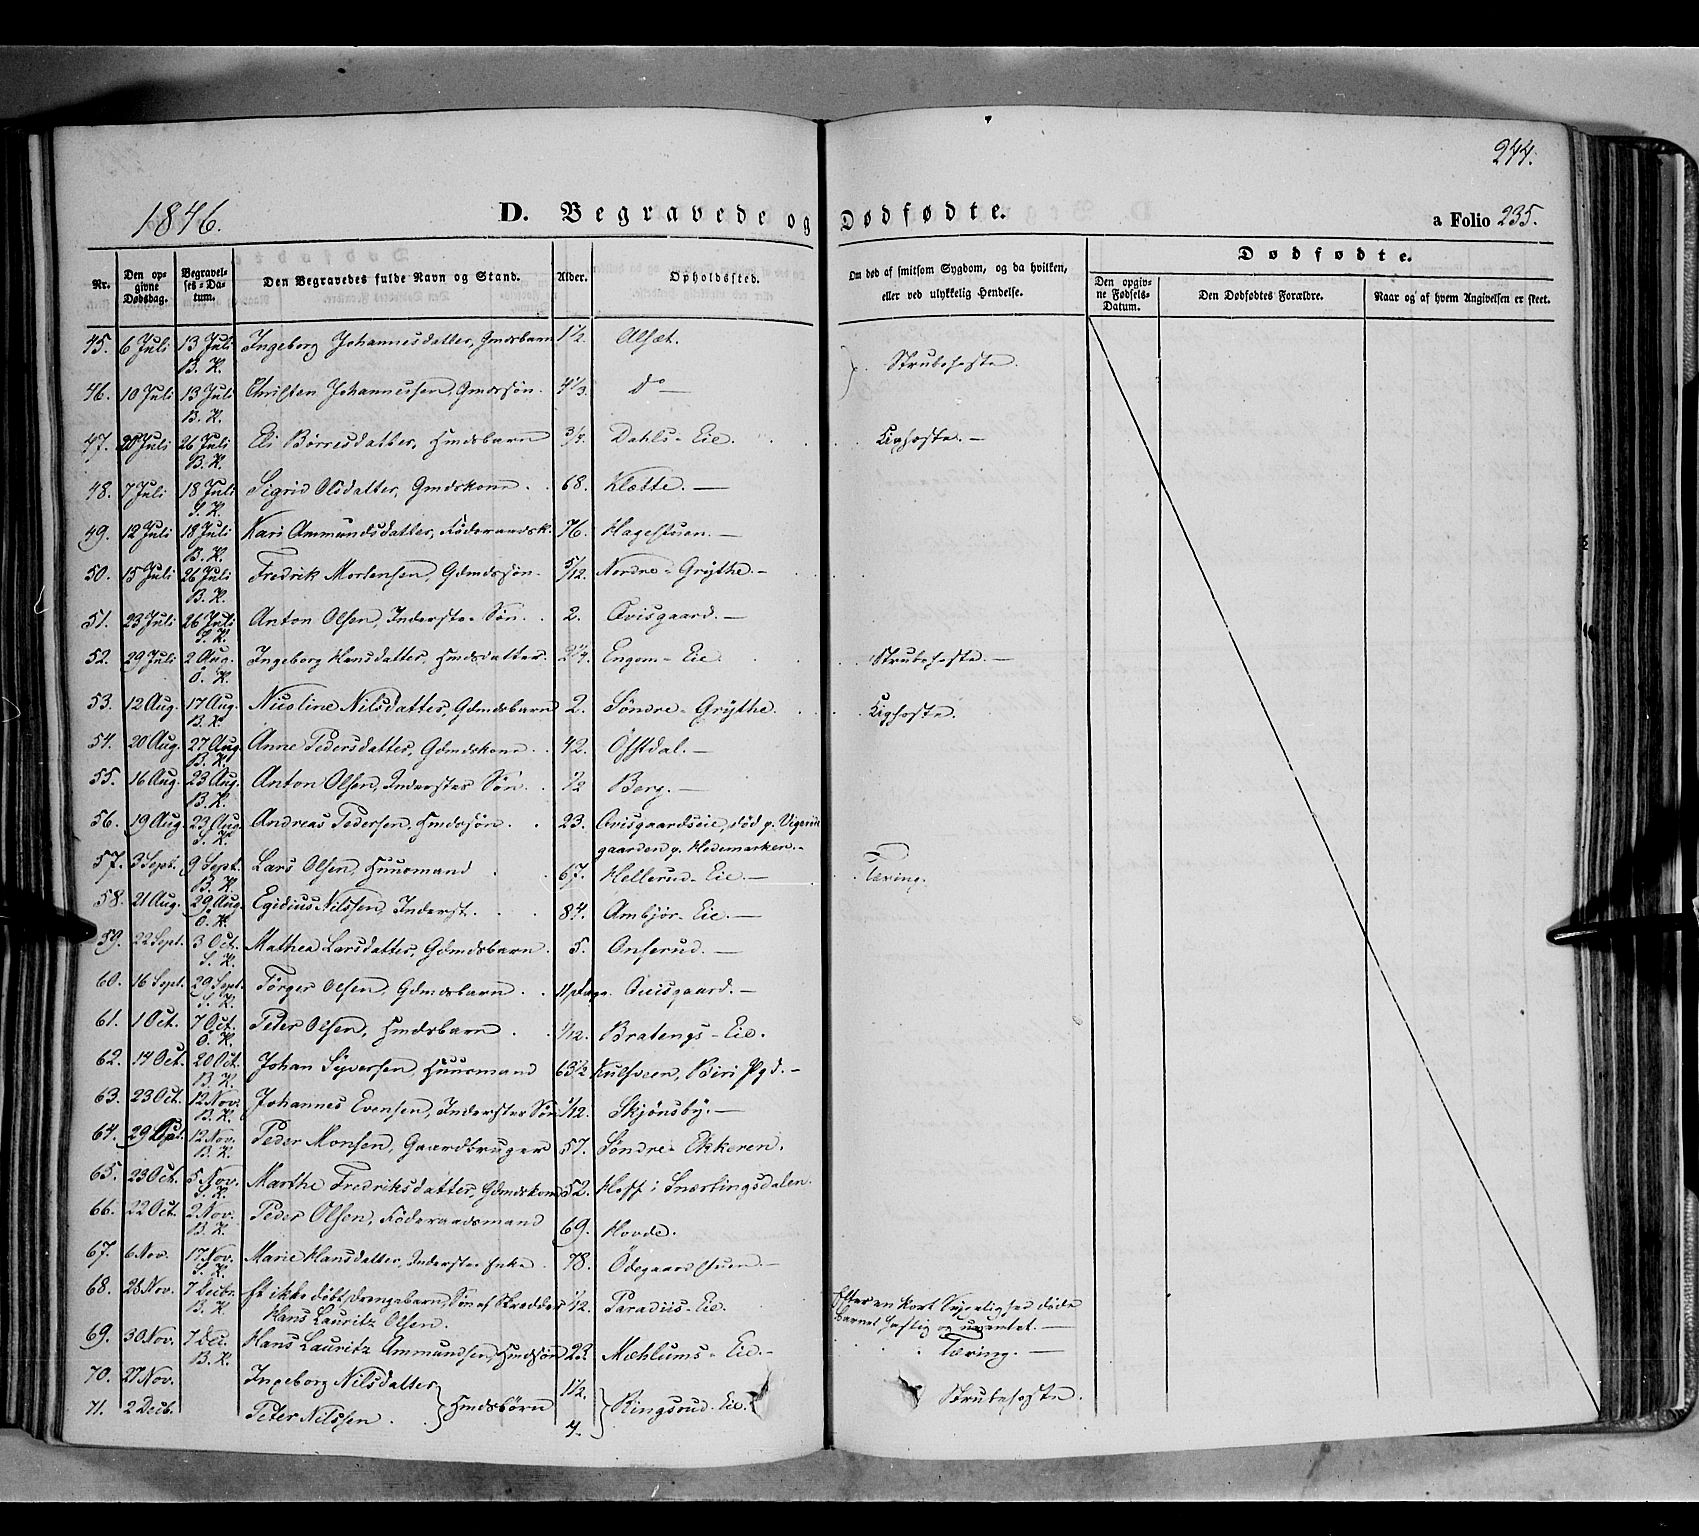 244.
1846.
D. Begravede og Dødfødte.
a Folio 235.
Nr.
Den opgivne Dødsdag.
Begravelses-Datum.
Den Begravedes fulde Navn og Stand.
Alder.
Opholdssted.
Om død af smitsom Sygdom, og da hvilken, eller ved ulykkelig Hendelse.
Dødfødte.
Den opgivne Fødsels-Datum.
Den Dødfødtes Forældre.
Naar og af hvem Angivelsen er skeet.
45. 6 Juli 13 Juli B. K. Ingeborg Johannesdatter, Gmdsbarn 1½. Alset. } Strubehoste.
46. 10 Juli 13 Juli B. K. Christen Johannessen, Gmdssøn. 4⅓. do —
47. 20 Juli 26 Juli B. K. Eli Børresdatter, Hmdsbarn ¾. Dahls-Eie. Kighoste. —
48. 7 Juli 18 Juli S. K. Sigrid Olsdatter, Gmdskone. 68. Klætte. —
49. 12 Juli 18 Juli B. K. Kari Ammundsdatter, Föderaadsk. 76. Hagestuen. —
50. 15 Juli 26 Juli B. K. Fredrik Mortensen, Gdmdssøn. 5/12. Nordre-Grythe. —
51. 23 Juli 26 Juli S. K. Anton Olsen, Inderste-Søn. 2. Qvisgaard. —
52. 29 Juli 2 Aug. Ö. K. Ingeborg Hansdatter, Hmdsdatter. 2¼. Engom-Eie. Strubehoste. —
53. 12 Aug. 17 Aug. B. K. Nicoline Nilsdatter, Gdmdsbarn 2. Søndre-Grythe. Kighoste.
54. 20 Aug. 27 Aug. B. K. Anne Pedersdatter, Gdmdskone. 42. Öfstdal. —
55. 16 Aug. 23 Aug. B. K. Anton Olsen, Inderstes Søn. ½ Berg. —
56. 19 Aug. 23 Aug. S. K. Andreas Pedersen, Hmdssøn. 23. Qvisgaardseie, død p.
gaarden p. Hedemarken. —
57. 3 Sept. 9 Sept. B. K. Lars Olsen, Huusmand 67. Hellerud-Eie. — Tæring.
58. 21 Aug. 29 Aug. Ö. K. Egidius Nilssen, Inderst. 84. Ambjør-Eie. —
59. 22 Sept. 3 Oct. S. K. Mathea Larsdatter, Gdmdsbarn. 5. Onserud. —
60. 16 Sept. 29 Sept. S. K. Törger Olsen, Gdmdsbarn. 11 Dage. Qvisgaard. —
61. 1 Oct. 7 Oct. Ö. K. Peter Olsen, Hmdsbarn 1/12. Bratengs-Eie.
62. 14 Oct. 20 Oct. B. K. Johan Syversen, Huusmand 63½ Kulsveen, Biri Pgd. —
63. 23 Oct. 12 Nov. B. K. Johannes Evensen, Inderstes Søn 1/12. Skjønsby. —
64. 29 12 Nov. B. K. Peder Monsen, Gaardbruger 57. Søndre-Ekkeren.
65. 23 Oct. 5 Nov. S. K. Marthe Fredriksdatter, Gdmdskone 52. Hoff i Snertingsdalen.
66. 22 Oct. 2 Nov. B. K. Peder Olsen, Föderaadsmand 69. Hovde.
67. 6 Nov. 17 Nov. S. K. Marie Hansdatter, Inderste-Enke. 78. Ödegaardstuen. —
68. 28 Nov. 7 Decbr. B. K. Et ikke døbt Drengebarn, Søn af Skredder 1/12. Paradiis-Eie. Efter en kort Sygelighed døde
Hans Lauritz Olsen. Barnet hastig og uventet. —
69. 30 Nov. 7 Dec. B. K. Hans Lauritz Ammundsen, Hmdssøn 23. Mæhlums-Eie. — Tæring. —
70. 27 Nov. Ingeborg Nilsdatter } Hmdsbørn 1½. } Ringsrud-Eie. Strubehoste.
71. 2 Decb. Peter Nilssen. 4.